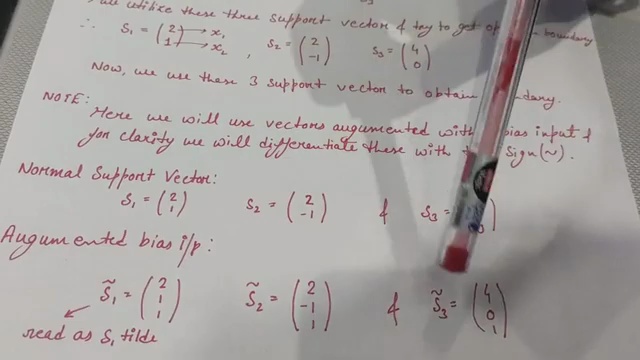 we utilize these three support vector & try to get boundary
∴ S₁ = (2 1) → x₁ → x₂ , S₂ = (2 -1) S₃ = (4 0)
Now, we use these 3 support vector to obtain boundary.
NOTE:
Here we will use vectors augumented with bias input &
for clarity we will differentiate these with sign (~).
Normal Support Vector:
S₁ = (2 1) S₂ = (2 -1) & S₃ =
Augumented bias i/p:
S̃₁ = (2 1 1) S̃₂ = (2 -1 1) & S̃₃ = (4 0 1)
read as S₁ tilde